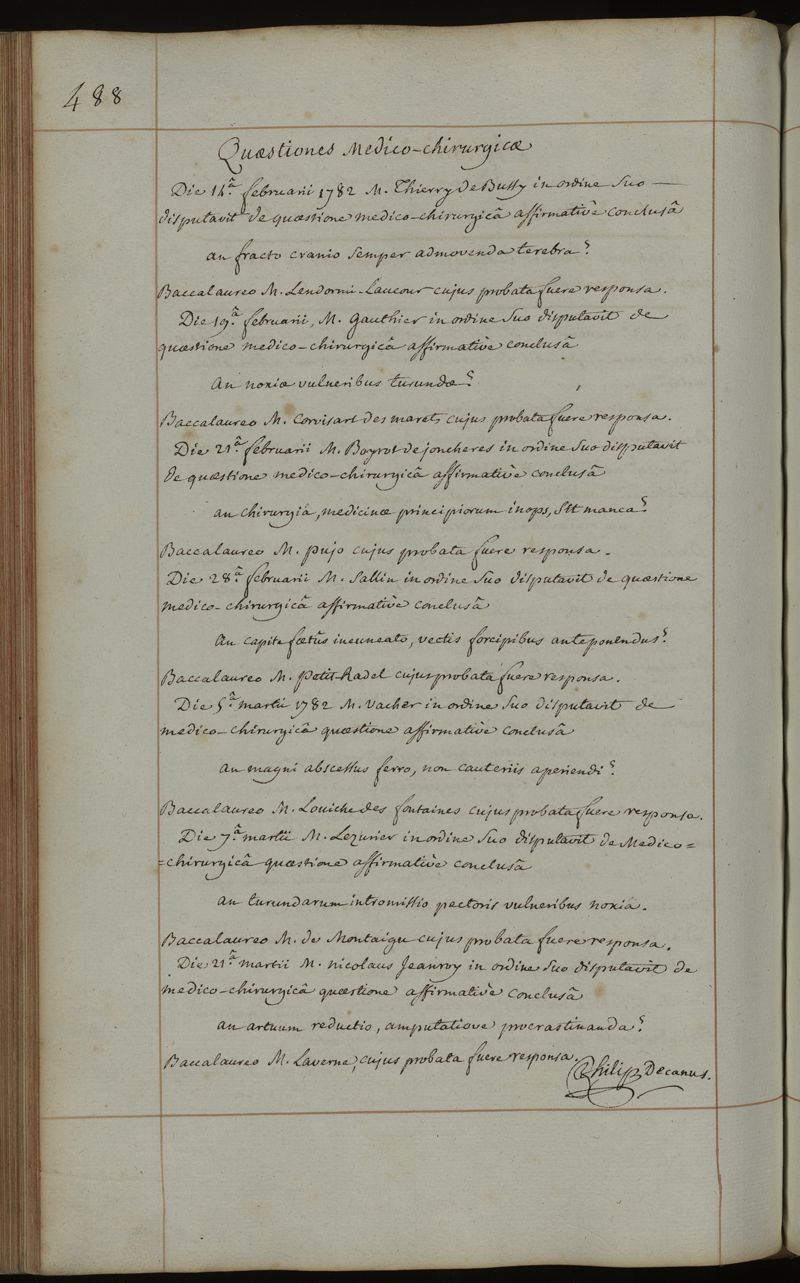 488
Quæstiones Medico-chirurgicæ
Die 14.ª februarii 1782 M. Thierry de Bussy in ordine suo —
disputavit de quæstione medico-chirurgicâ affirmativè conclusâ
an fracto cranio semper admovenda terebra?
Baccalaureo M. Lendormi-Laucour cujus probata fuere responsa.
Die 19.ª februarii, M. Gauthier in ordine suo disputavit de
quæstione medico-chirurgicâ affirmativè conclusâ
An noxiæ vulneribus turundæ?
Baccalaureo M. Corvisart des marets cujus probata fuere responsa.
Die 21.ª februarii M. Boyrot de joncheres in ordine suo disputavit
de quæstione medico-chirurgicâ affirmativè conclusâ
an chirurgia, medicinæ principiorum inops, sit manca?
Baccalaureo M. pujo cujus probata fuere responsa.
Die 28.ª februarii M. Sallin in ordine suo disputavit de quæstione
medico-chirurgicâ affirmativè conclusâ
An capite fœtûs incuneato, vectis forcipibus anteponendus?
Baccalaureo M. petit-Radel cujus probata fuere responsa.
Die 5.ª martii 1782 M. Vacher in ordine suo disputavit de
medico-chirurgicâ quæstione affirmativè conclusâ
an magni abscessus ferro, non cauteriis aperiendi?
Baccalaureo M. Louiche des fontaines cujus probata fuere responsa.
Die 7.ª martii M. Lezurier in ordine suo disputavit de Medico=
=chirurgicâ quæstione affirmativè conclusâ
an turundarum intromissio pectoris vulneribus noxia.
Baccalaureo M. de Montaigu cujus probata fuere responsa.
Die 21.ª martii M. nicolaus Jeanroy in ordine suo disputavit de
medico-chirurgicâ quæstione affirmativè conclusâ
an artuum reductio, amputatione procrastinanda?
Baccalaureo M. Laverne, cujus probata fuere responsa.
Philip Decanus.